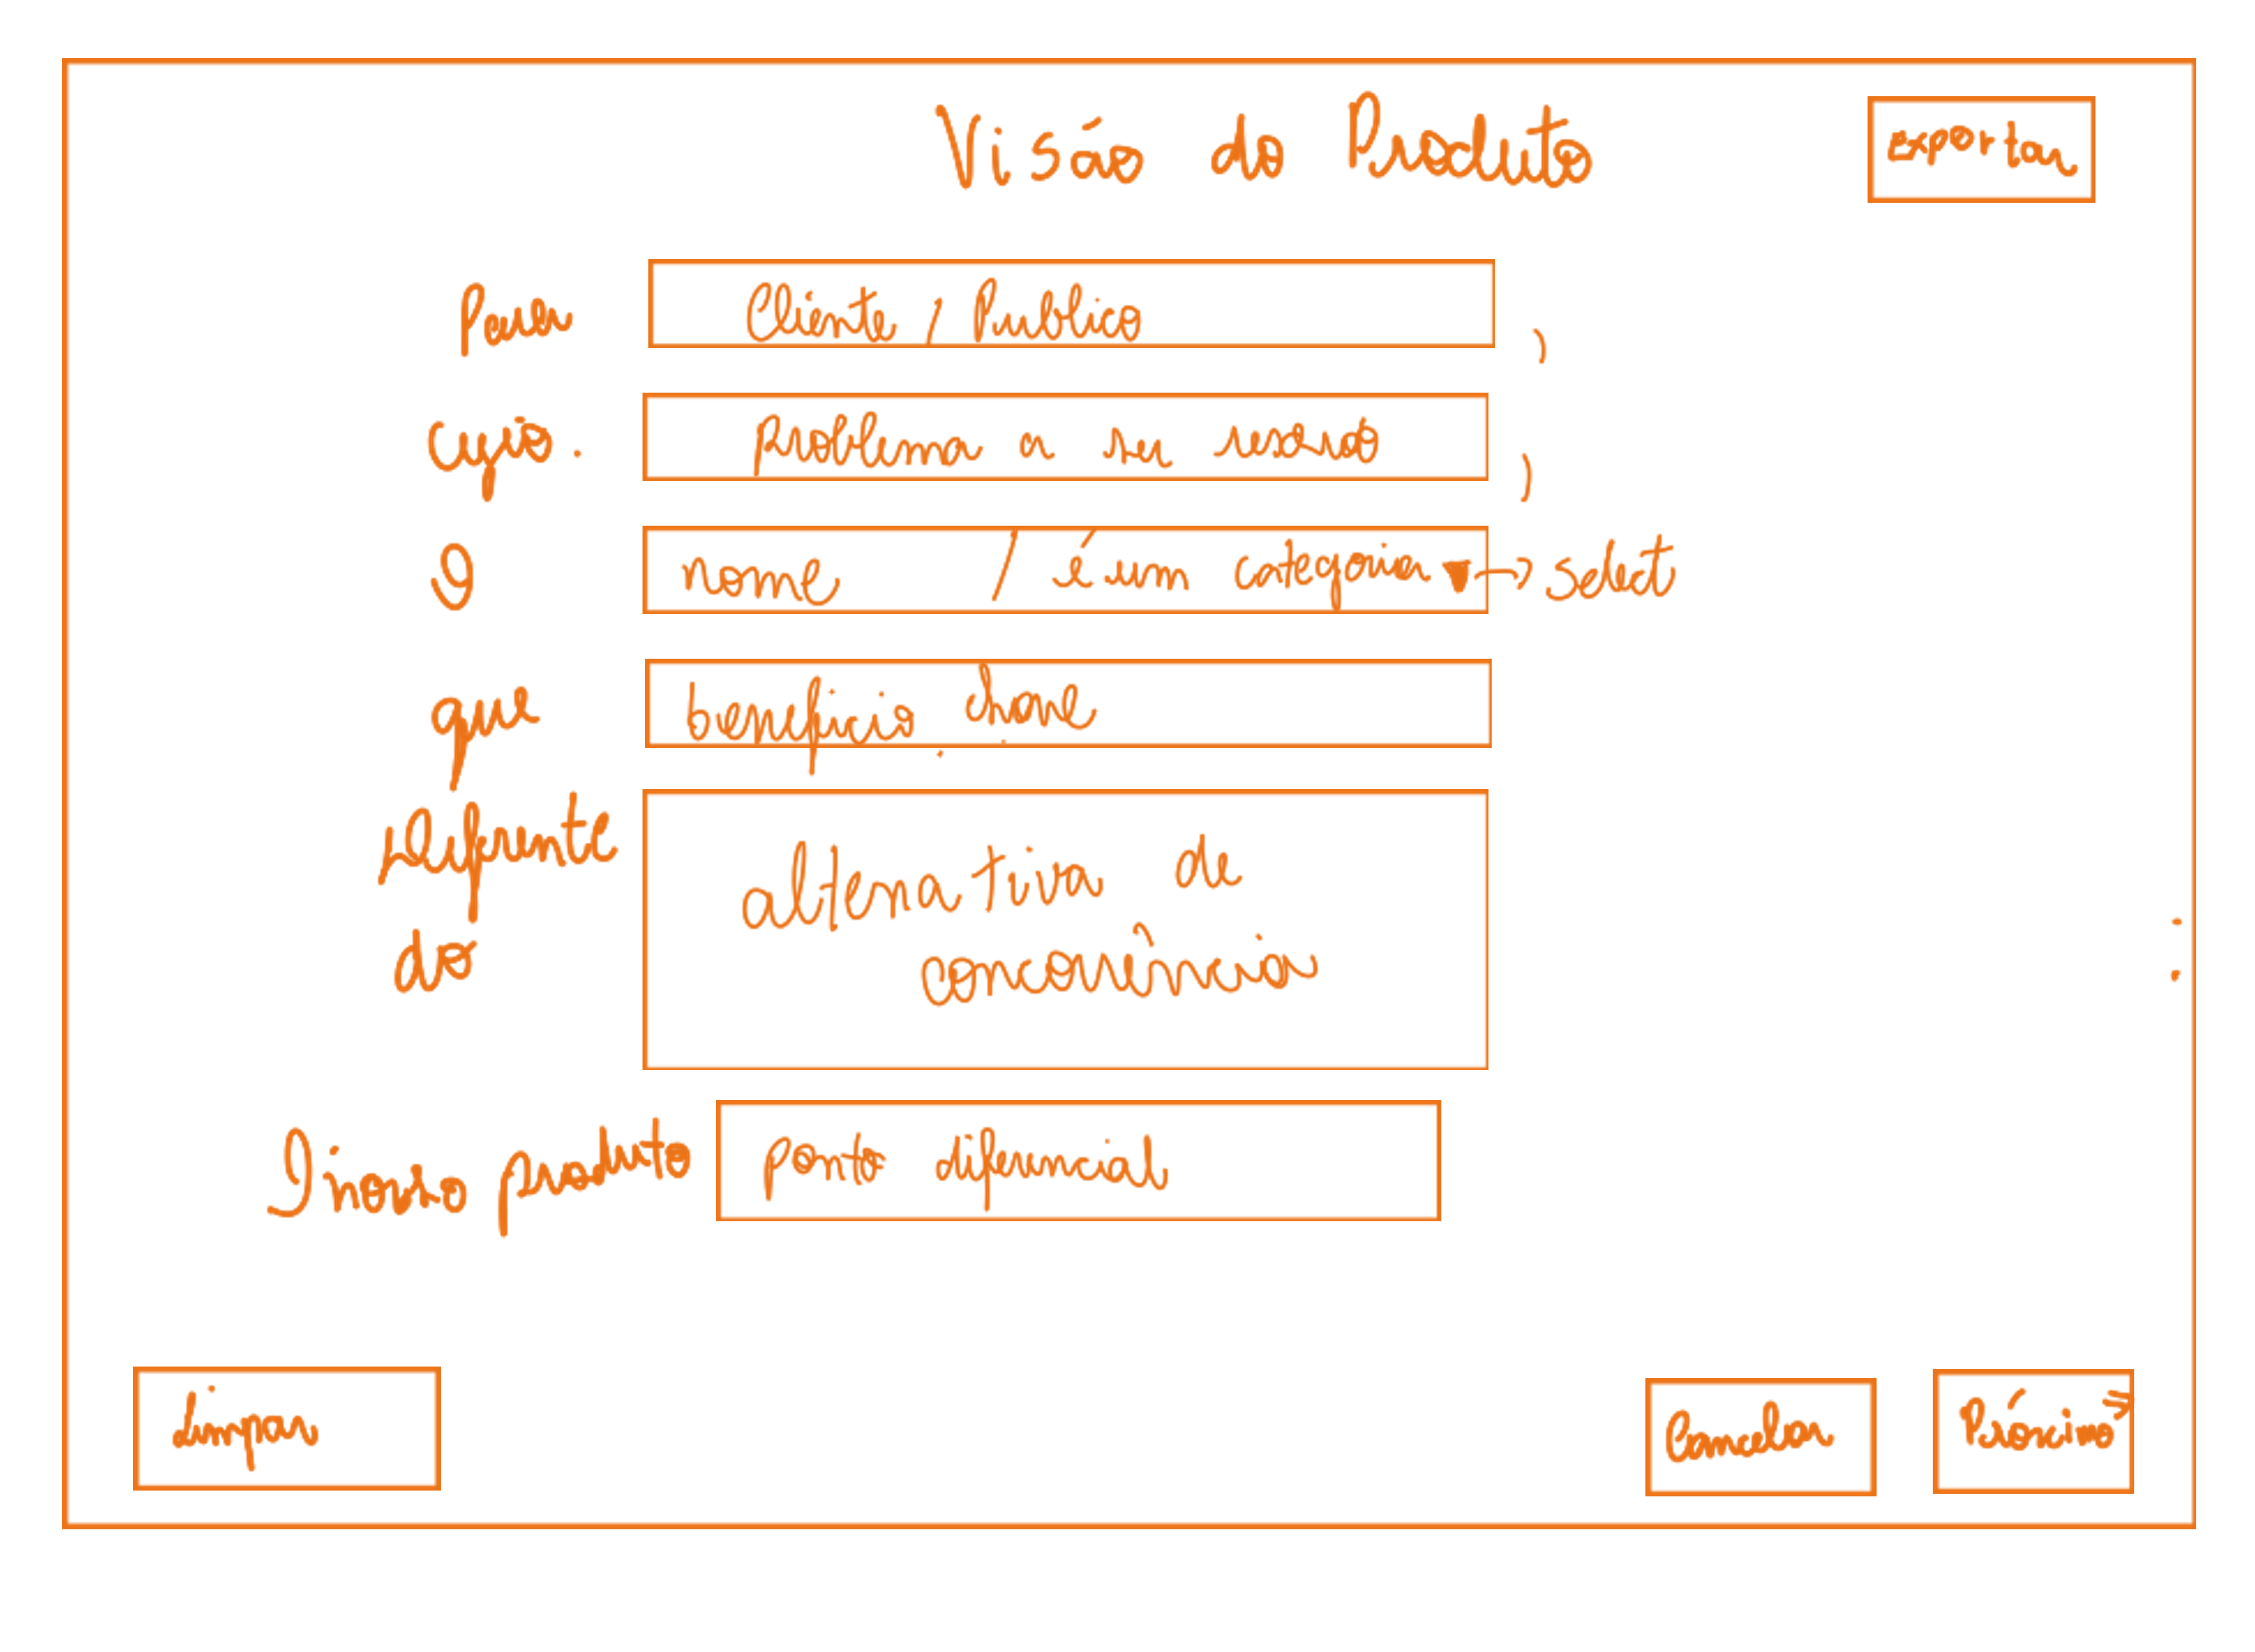 Visão do Produto
exportar
Para Cliente / Publico ,
Cujo. problema a ser resolvido ,
O nome / é um categoria → select
que beneficio chave
Diferente alternativa de
do concorrência
nosso produto ponto diferencial
Limpar
Cancelar
Próximo